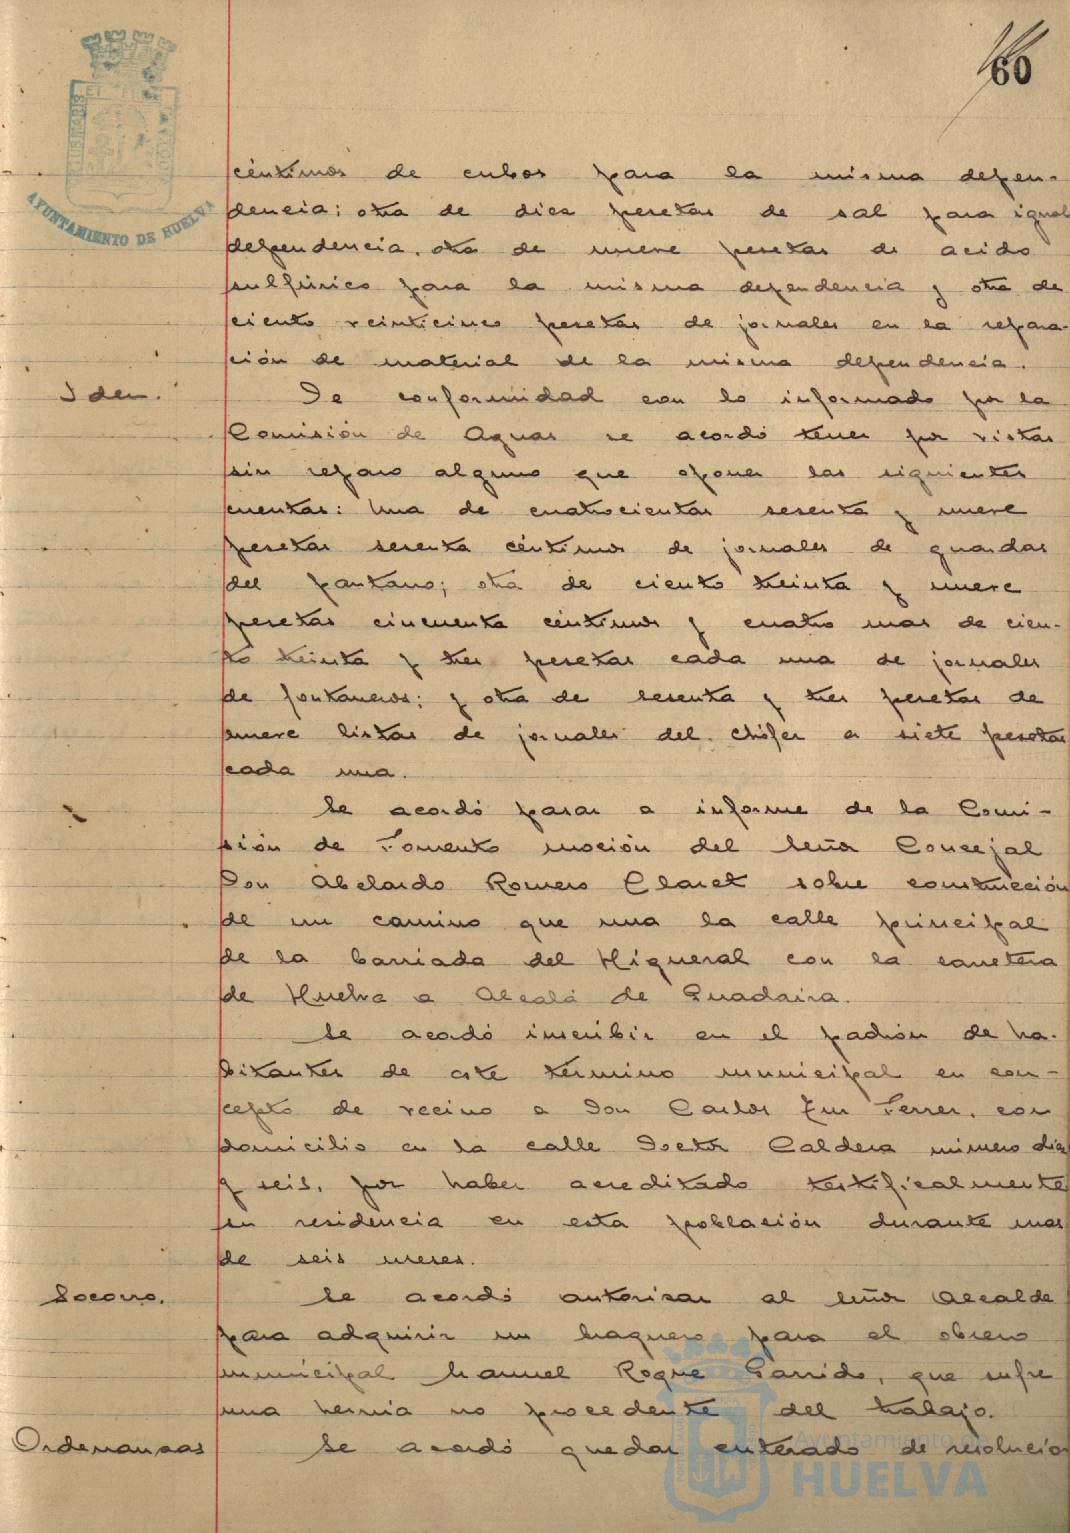 60
AYUNTAMIENTO DE HUELVA
céntimos de cubos para la misma depen-
dencia; otra de diez pesetas de sal para igual
dependencia, otra de nueve pesetas de acido
sulfúrico para la misma dependencia y otra de
ciento veinticinco pesetas de jornales en la repara-
ción de material de la misma dependencia.
Idem.
De conformidad con lo informado por la
Comisión de Aguas se acordó tener por vistas
sin reparo alguno que oponer las siguientes
cuentas: Una de cuatrocientas sesenta y nueve
pesetas sesenta céntimos de jornales de guardas
del pantano; otra de ciento treinta y nueve
pesetas cincuenta céntimos y cuatro mas de cien-
to treinta y tres pesetas cada una de jornales
de fontaneros; y otra de sesenta y tres pesetas de
nueve listas de jornales del chófer a siete pesetas
cada una.
Se acordó pasar a informe de la Comi-
sión de Fomento moción del Señor Concejal
Don Abelardo Romero Claret sobre construcción
de un camino que una la calle principal
de la barriada del Higueral con la carretera
de Huelva a Alcalá de Guadaira.
Se acordó inscribir en el padrón de ha-
bitantes de este término municipal en con-
cepto de vecino a Don Carlos Ferrer, con
domicilio en la calle Doctor Caldera número diez
y seis, por haber acreditado testificalmente
su residencia en esta población durante mas
de seis meses.
Socorro.
Se acordó autorizar al Señor Alcalde
para adquirir un braguero para el obrero
municipal Manuel Roque Garrido, que sufre
una hernia no procedente del trabajo.
Ordenanzas
Se acordó quedar enterado de resolución
Ayuntamiento de
HUELVA